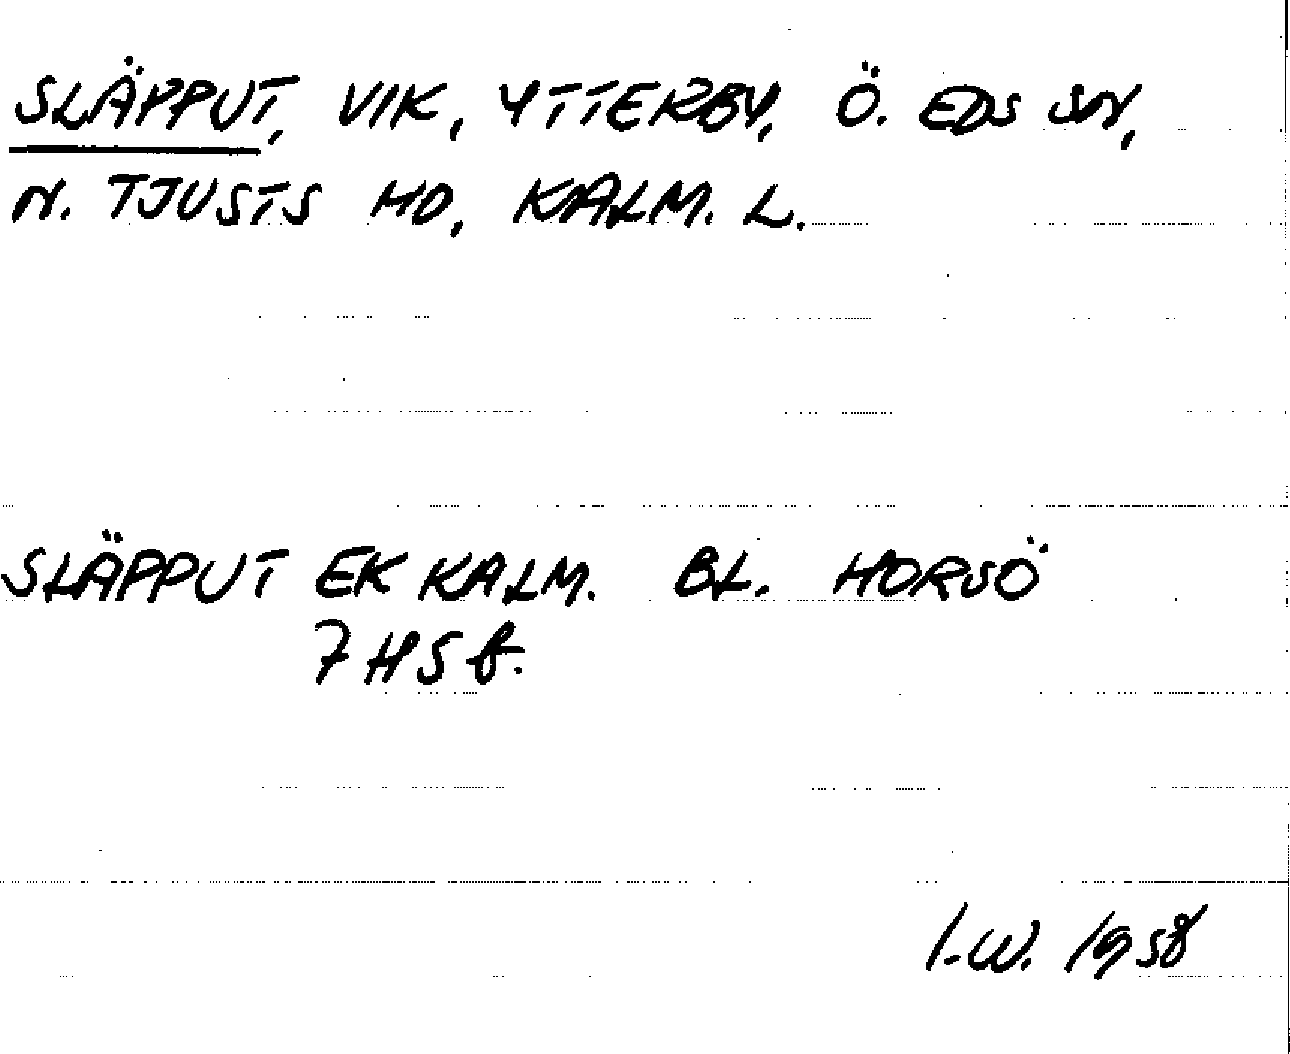 SLÄPPUT, VIK, YTTERBY, Ö. EDS SN,
N. TJUSTS HD, KALM. L.
SLÄPPUT EK KALM. BL. HORSÖ
7 H 5 f.
I.W. 1958